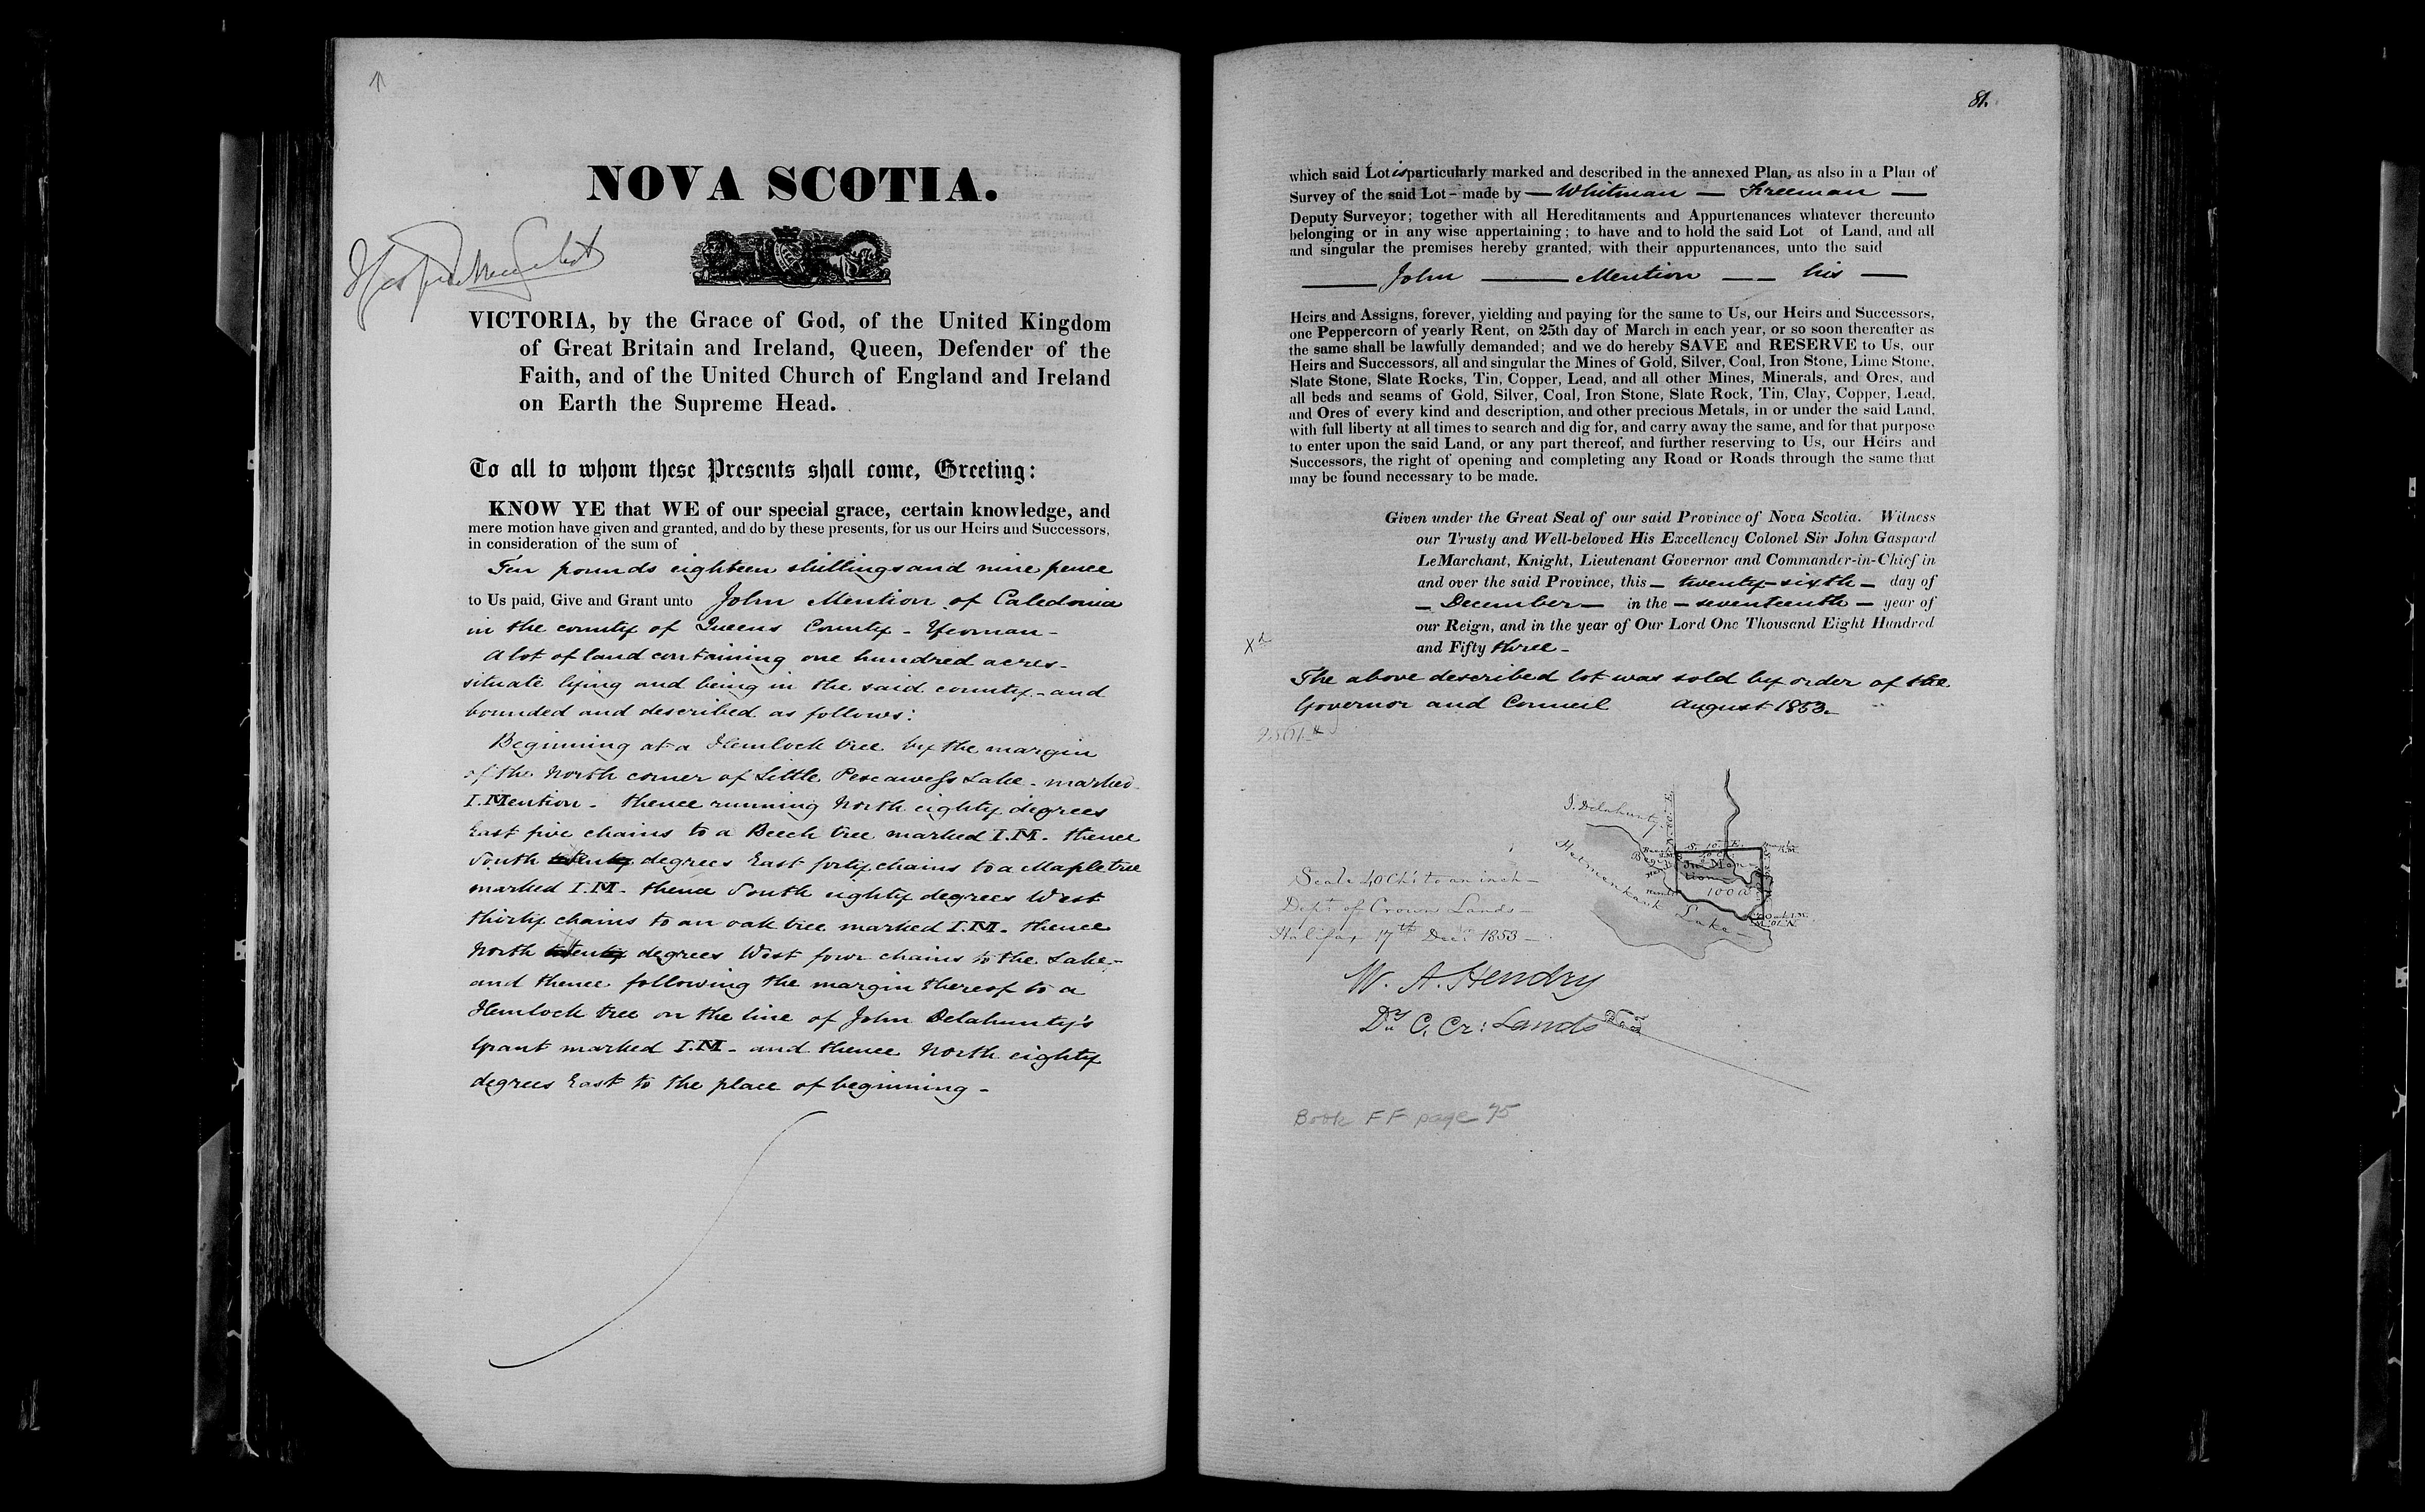 NOVA SCOTIA.
VICTORIA, by the Grace of God, of the United Kingdom
of Great Britain and Ireland, Queen, Defender of the
Faith, and of the United Church of England and Ireland
on Earth the Supreme Head.
To all to whom these Presents shall come, Greeting:
KNOW YE that WE of our special grace, certain knowledge, and
mere motion have given and granted, and do by these presents, for us our Heirs and Successors,
in consideration of the sum of
Ten pounds eighteen shillings and nine pence
to Us paid, Give and Grant unto John Mention of Caledonia
in the county of Queens County - Yeoman -
A lot of land containing one hundred acres -
situate lying and being in the said county - and
bounded and described as follows:
Beginning at a Hemlock tree by the margin
of the North corner of Little Pescawess Lake - marked
I. Mention - thence running North eighty degrees
East five chains to a Beech tree marked I.M. thence
South degrees East forty chains to a Maple tree
marked I.M. thence South eighty degrees West
thirty chains to an oak tree marked I.M. thence
North degrees West four chains to the Lake -
and thence following the margin thereof to a
Hemlock tree on the line of John Delahunty's
Grant marked I.M - and thence North eighty
degrees East to the place of beginning -
81.
which said Lot is particularly marked and described in the annexed Plan, as also in a Plan of
Survey of the said Lot - made by — Whitman — Freeman —
Deputy Surveyor; together with all Hereditaments and Appurtenances whatever thereunto
belonging or in any wise appertaining; to have and to hold the said Lot of Land, and all
and singular the premises hereby granted, with their appurtenances, unto the said
— John — Mention — his —
Heirs and Assigns, forever, yielding and paying for the same to Us, our Heirs and Successors,
one Peppercorn of yearly Rent, on 25th day of March in each year, or so soon thereafter as
the same shall be lawfully demanded; and we do hereby SAVE and RESERVE to Us, our
Heirs and Successors, all and singular the Mines of Gold, Silver, Coal, Iron Stone, Lime Stone,
Slate Stone, Slate Rocks, Tin, Copper, Lead, and all other Mines, Minerals, and Ores, and
all beds and seams of Gold, Silver, Coal, Iron Stone, Slate Rock, Tin, Clay, Copper, Lead,
and Ores of every kind and description, and other precious Metals, in or under the said Land,
with full liberty at all times to search and dig for, and carry away the same, and for that purpose
to enter upon the said Land, or any part thereof, and further reserving to Us, our Heirs and
Successors, the right of opening and completing any Road or Roads through the same that
may be found necessary to be made.
Given under the Great Seal of our said Province of Nova Scotia. Witness
our Trusty and Well-beloved His Excellency Colonel Sir John Gaspard
LeMarchant, Knight, Lieutenant Governor and Commander-in-Chief in
and over the said Province, this — twenty-sixth — day of
— December — in the — seventeenth — year of
our Reign, and in the year of Our Lord One Thousand Eight Hundred
and Fifty three -
The above described lot was sold by order of the
Governor and Council August 1853.
J. Delahunty
Lake
100 a
Scale 40 Chs to an inch -
Dept of Crown Lands -
Halifax 17th Decr 1853 -
W. A. Hendry
Dy C. Cr: Lands
Book FF page 75